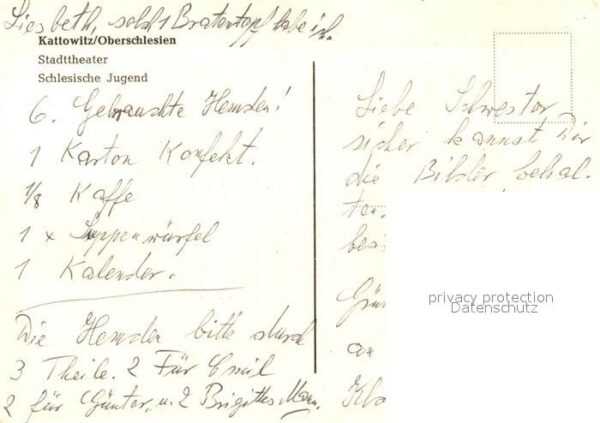 Liesbeth, solch 1 Bratentopf habe ich.
Kattowitz/Oberschlesien
Stadttheater
Schlesische Jugend
6. Gebrauchte Hemden!
1 Karton Konfekt.
1/8 Kaffe
1 x Suppenwürfel
1 Kalender.
Die Hemden bitte durch
3 Theile. 2 Für Emil
2 für Günter, u. 2 Brigittes Mann.
Liebe Schwester
sicher kannst Dir
die Bilder behal-
ten.
Gün
an
privacy protection
Datenschutz